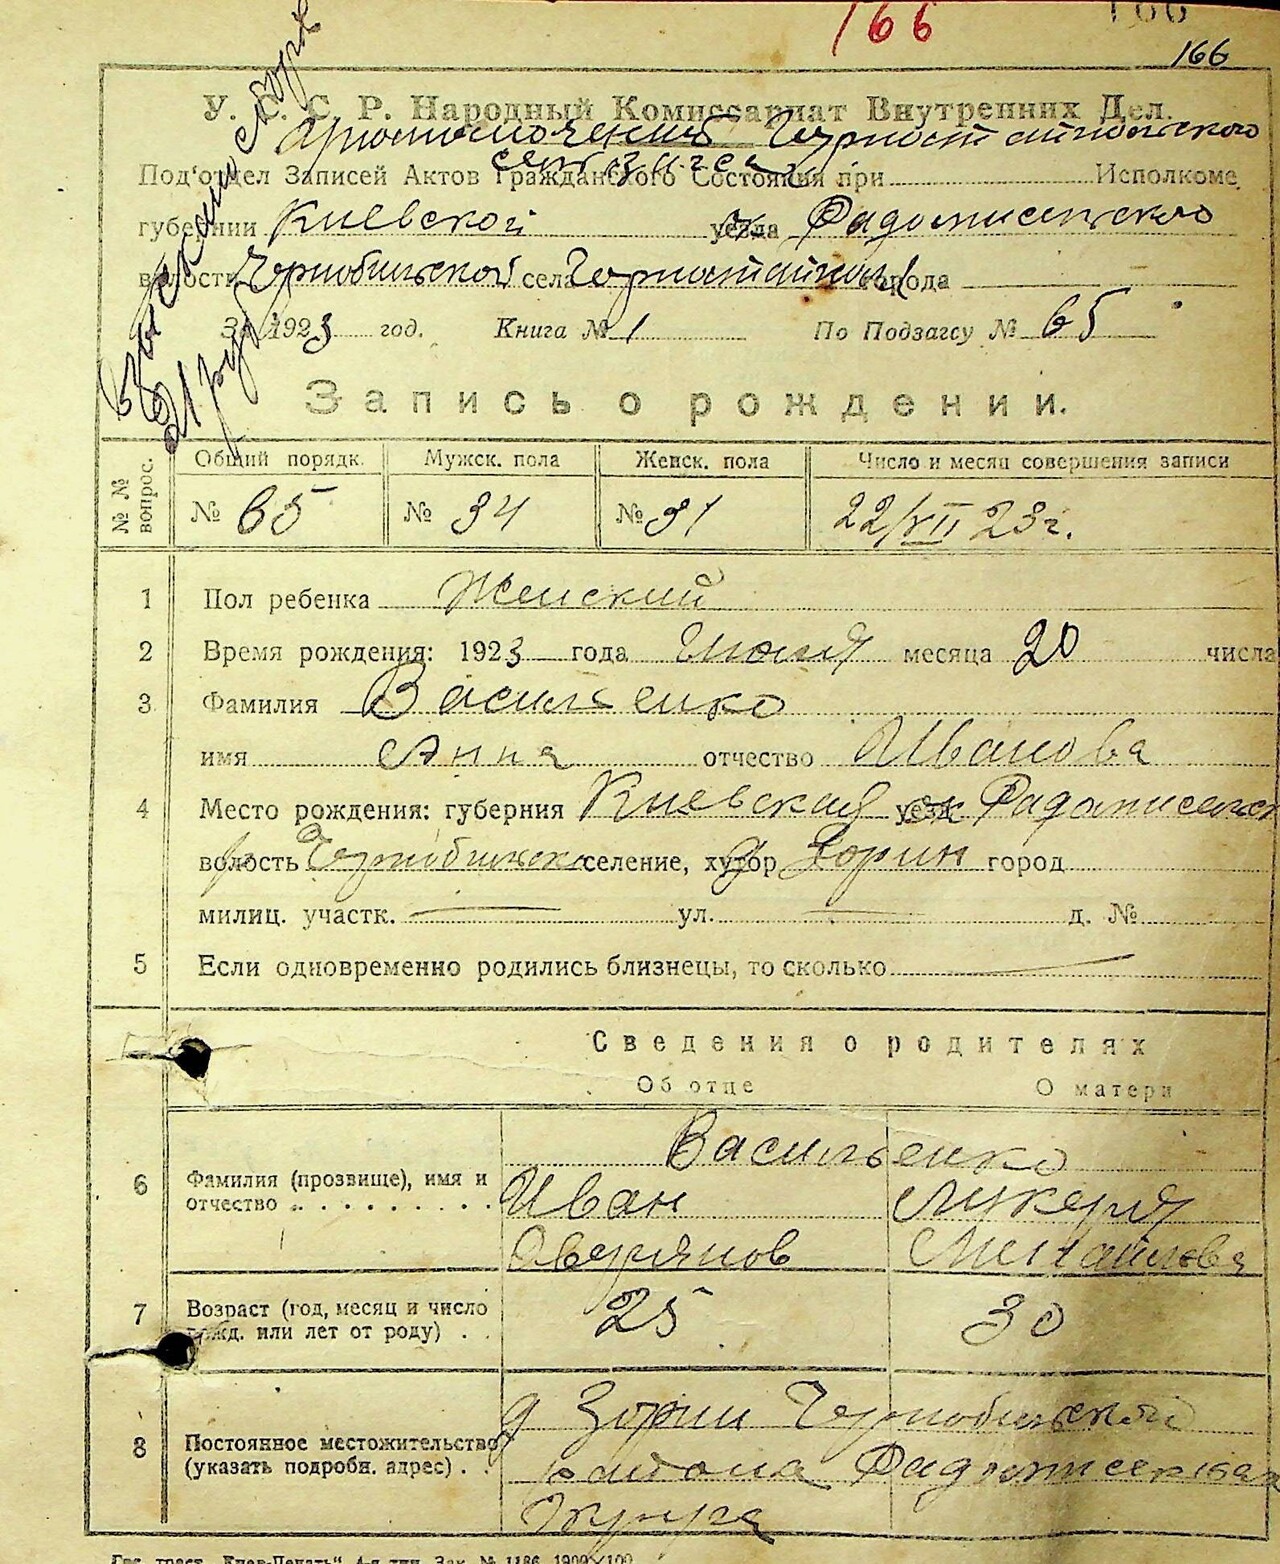 166
166
166
У. С. С. Р. Народный Комиссариат Внутренних Дел.
Под'отдел Записей Актов Гражданского Состояния при Исполкоме
губернии Киевской уезда Радомисльского
волости Чернобильской села города
За 1923 год. Книга № 1 По Подзагсу № 65
Запись о рождении.
№ № вопрос.
Общий порядк. Мужск. пола Женск. пола Число и месяц совершения записи
№ 65 № 34 № 31 22/VII 23 г.
1 Пол ребенка Женский
2 Время рождения: 1923 года месяца 20 числа
3 Фамилия Васильенко
имя Анна отчество Иванова
4 Место рождения: губерния Киевская уезд
волость селение, хутор д Зорин город
милиц. участк. ул. д. №
5 Если одновременно родились близнецы, то сколько
Сведения о родителях
Об отце О матери
Васильенко
6 Фамилия (прозвище), имя и отчество
Иван Лукеря
Оверянов
7 Возраст (год, месяц и число рожд. или лет от роду)
25 30
8 Постоянное местожительство (указать подробн. адрес)
д Зорин Чернобильской
района
Округа